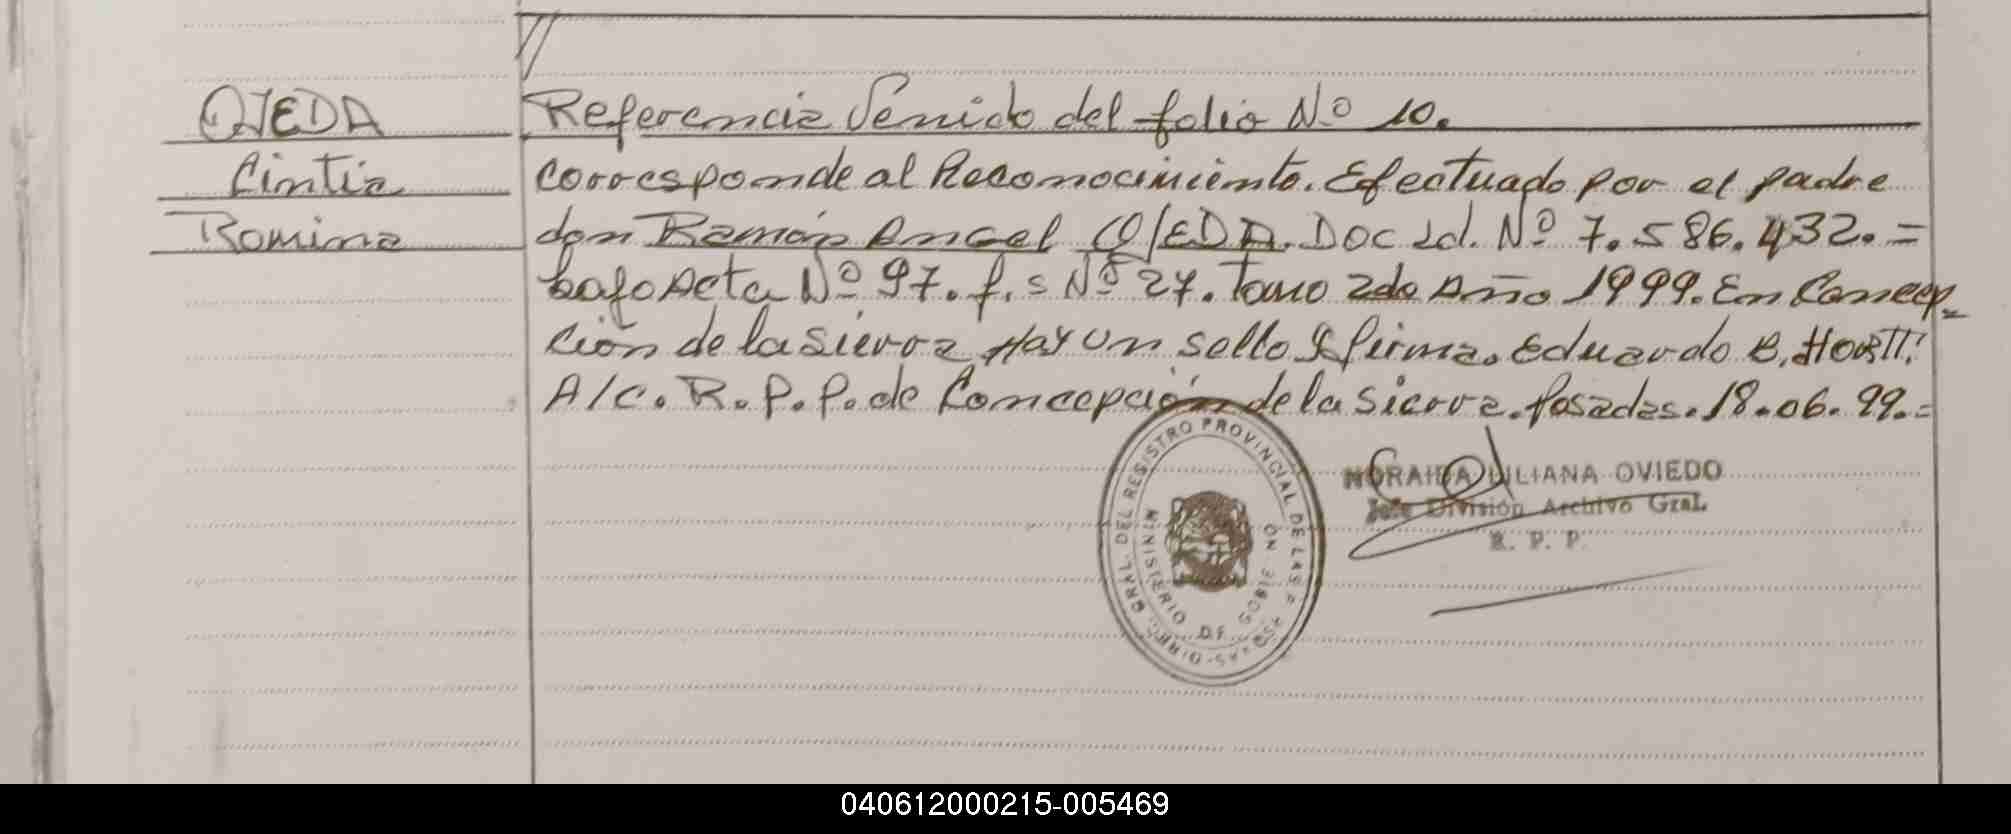 OJEDA
Cintia
Romina
Referencia Venido del folio Nº 10.
corresponde al Reconocimiento. Efectuado por el padre
don Ramón Angel OJEDA. Doc Id. Nº 7.586.432.=
bajo Acta Nº 97. f.s Nº 27. Tomo 2do Año 1999. En Concep=
ción de la Sierra Hay un sello y firma. Eduardo
A/c. R.P.P. de Concepción de la Sierra. Posadas. 18.06.99.=
NORAIDA LILIANA OVIEDO
Jefe División Archivo Gral.
R. P. P.
GRAL. DEL REGISTRO PROVINCIAL DE LAS
MINISTERIO DE
040612000215-005469